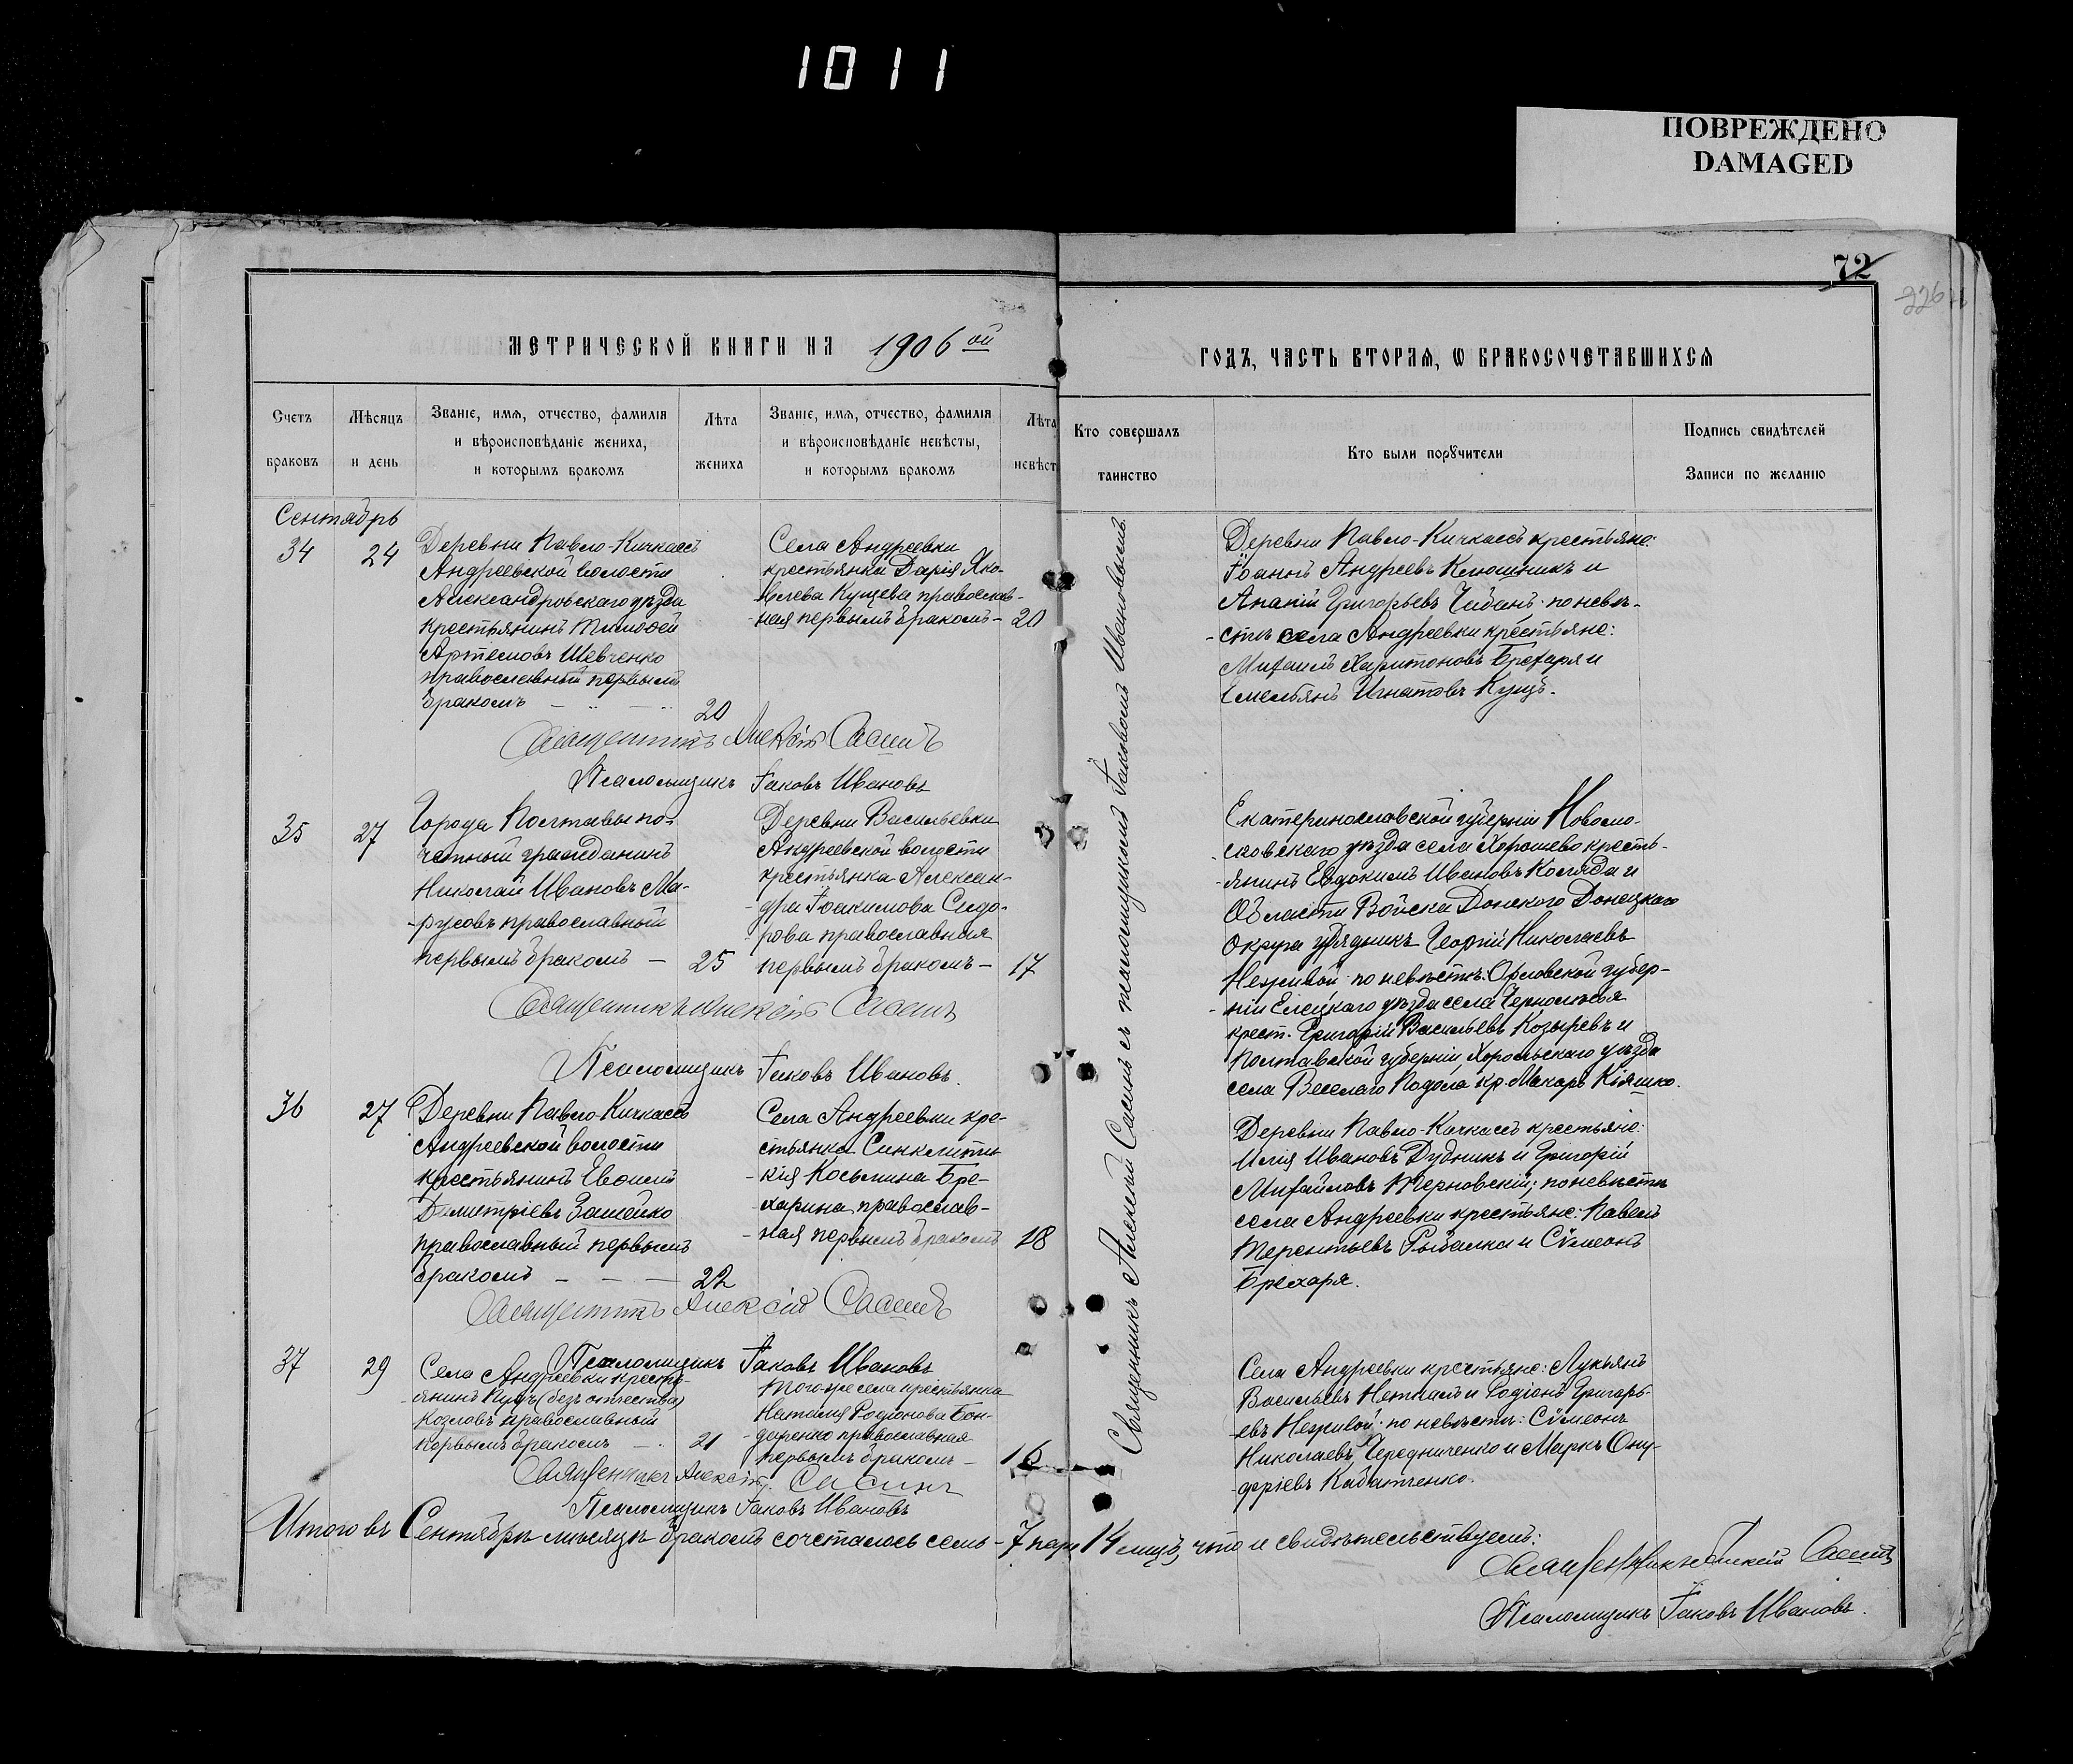 1011
ПОВРЕЖДЕНО
DAMAGED
72
226
МЕТРИЧЕСКОЙ КНИГИ НА 1906ой
ГОДЪ, ЧАСТЬ ВТОРАЯ, Ѡ БРАКОСОЧЕТАВШИХСЯ
Счетъ
браковъ
Мѣсяцъ
и день
Званіе, имя, отчество, фамилія
и вѣроисповѣданіе жениха,
и которымъ бракомъ
Лѣта
жениха
Званіе, имя, отчество, фамилія
и вѣроисповѣданіе невѣсты,
и которымъ бракомъ
Лѣта
невѣст
Кто совершалъ
таинство
Кто были порꙋчители
Подпись свидѣтелей
Записи по желанію
Сентябрь
34
24
Деревни Павло-Кичкассъ
Андреевской волости
Александровскаго уѣзда
крестьянинъ Тимоѳей
Артемовъ Шевченко
православный первымъ
бракомъ
20
Села Андреевки
крестьянка Дарія Яко-
влева Кущева православ-
-ная первымъ бракомъ -
20
Священникъ Алексій Сасинъ
Псаломщикъ Іаковъ Ивановъ
Деревни Павло-Кичкассъ крестьяне:
Іоаннъ Андреевъ Клюшникъ и
Ананій Григорьевъ Чабанъ; по невѣ-
-стѣ села Андреевки крестьяне:
Михаилъ Харитоновъ Брехаря и
Емельянъ Игнатовъ Кущъ.
Священникъ Алексій Сасинъ съ псаломщикомъ Іаковомъ Ивановымъ.
35
27
Города Полтавы по-
четный гражданинъ
Николай Ивановъ Ма-
-русовъ православный
первымъ бракомъ -
25
Деревни Васильевки
Андреевской волости
крестьянка Алексан-
-дра Іоакимова Сидо-
-рова православная
первымъ бракомъ -
17
Священникъ Алексій Сасинъ
Псаломщикъ Іаковъ Ивановъ.
Екатеринославской губерніи Новомо-
-сковскаго уѣзда села Хорошево кресть-
-янинъ Евдокимъ Ивановъ Коляда и
Области Войска Донского Донецкаго
Округа урядникъ Георгій Николаевъ
Неживой; по невѣстѣ: Орловской губер-
-ніи Елецкаго уѣзда села
крест. Григорій Васильевъ Козыревъ и
Полтавской губерніи, Хорольскаго уѣзда
села Веселаго Подола, кр. Макаръ Кіяшко.
36
27
Деревни Павло-Кичкассъ
Андреевской волости
крестьянинъ
Димитріевъ
православный первымъ
бракомъ - - -
22
Села Андреевки кре-
стьянка Синклити
-кія Косьмина Бре-
-харина, православ-
-ная первымъ бракомъ
18
Священникъ Алексій Сасинъ
Псаломщикъ Іаковъ Ивановъ
Деревни Павло-Кичкассъ крестьяне:
Илія Ивановъ Дудникъ и Григорій
Михайловъ Терновскій; по невѣстѣ
села Андреевки крестьяне: Павелъ
Терентьевъ Рыбалка и Сѵмеонъ
Брехаря.
37
29
Села Андреевки кресть-
-янинъ (безъ отчества)
Козловъ православный
первымъ бракомъ -
21
Того-же села крестьянка
Наталія Родіонова Бон-
-даренко православная
первымъ бракомъ -
16
Священникъ Алексій Сасинъ
Псаломщикъ Іаковъ Ивановъ
Села Андреевки крестьяне: Лукьянъ
Васильевъ и Родіонъ Григорь-
-евъ Неживой; по невѣстѣ: Сѵмеонъ
Николаевъ Чередниченко и Маркъ Ону-
-фріевъ
Итого въ Сентябрѣ мѣсяцѣ бракомъ сочеталось семь - 7 паръ 14 лицъ, что и свидѣтельствуемъ:
Священникъ Алексій Сасинъ
Псаломщикъ Іаковъ Ивановъ.